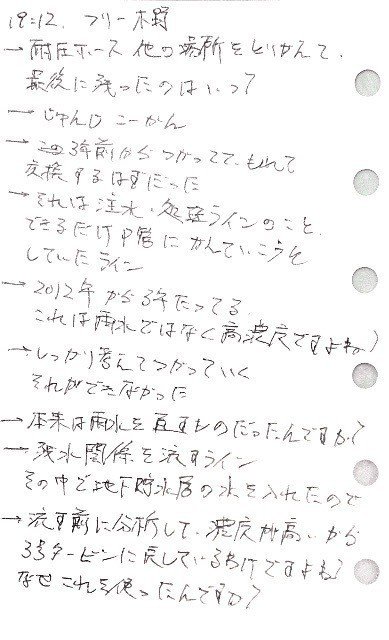 19:12. フリー木野
→ 耐圧ホース 他の場所をとりかえて、
最後に残ったのはいつ?
→ じゅんじ こーかん
→ 3年前からつかってて、もれて
交換するはずだった
→ それは注水・処理ラインのこと、
できるだけ早営にかんていこうそ
していたライン
→ 2012年から3年たってる
これは雨水ではなく高濃度ですよね?
→ しっかり考えてつかっていく
それができなかった
→ 本来は雨水を直すものだったんですか?
→ 残水関係を流すライン
その中で地下貯水層の水を入れたので
→ 流す前に分析して、濃度が高いから
3号タービンに戻しているわけですよね?
なぜこれを使ったんですか?